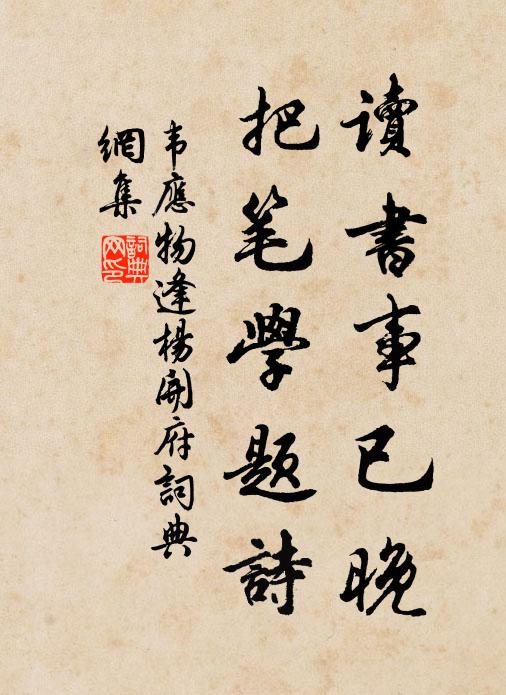 讀書事已晚
把笔學题詩
韦應物逢楊開府詞典
網集
詞典
网印